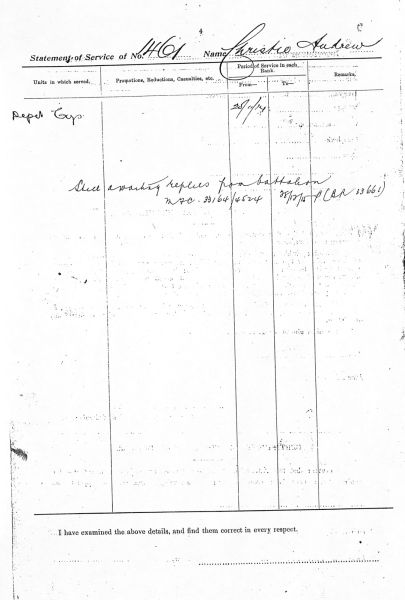 4
Statement of Service of No. 1461 Name Christie Andrew
Units in which served. Promotions, Reductions, Casualties, etc. Period of Service in each Rank. Remarks.
From— To—
Depot Coys
Still awaiting replies from battalion
I have examined the above details, and find them correct in every respect.